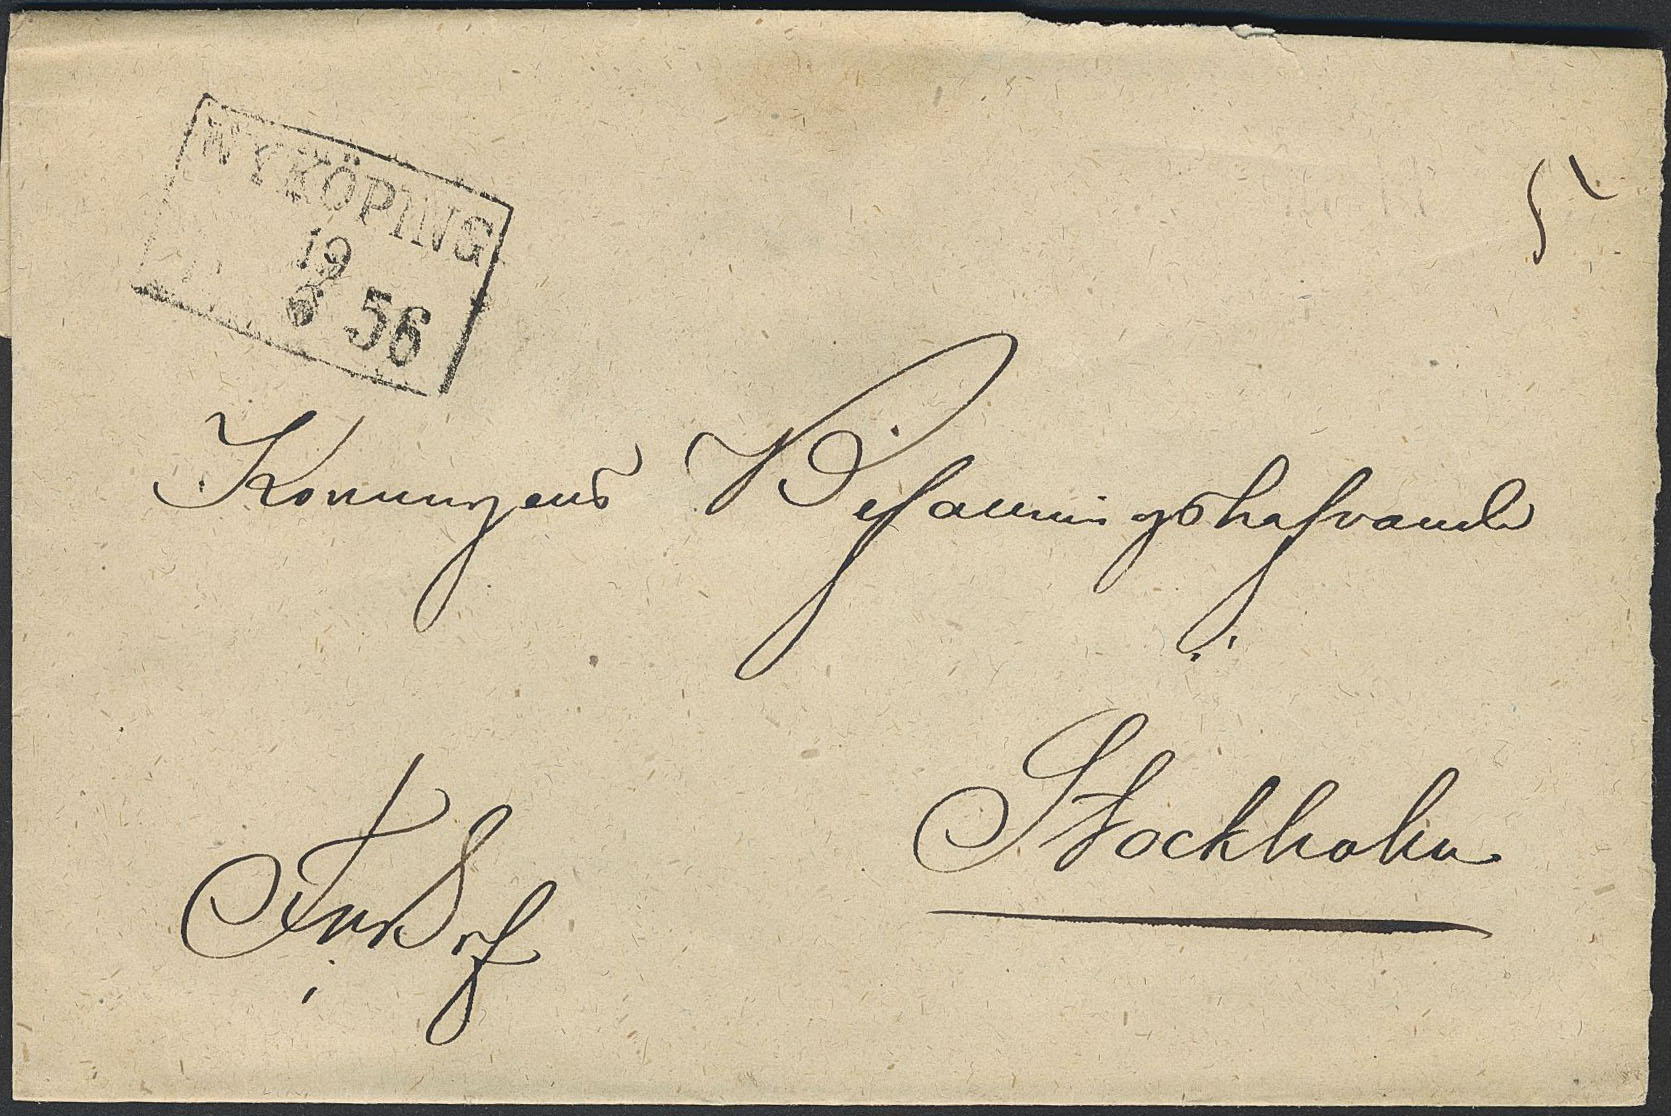 NYKÖPING
19
6 56
Konungens Befallningshafvande
Stockholm